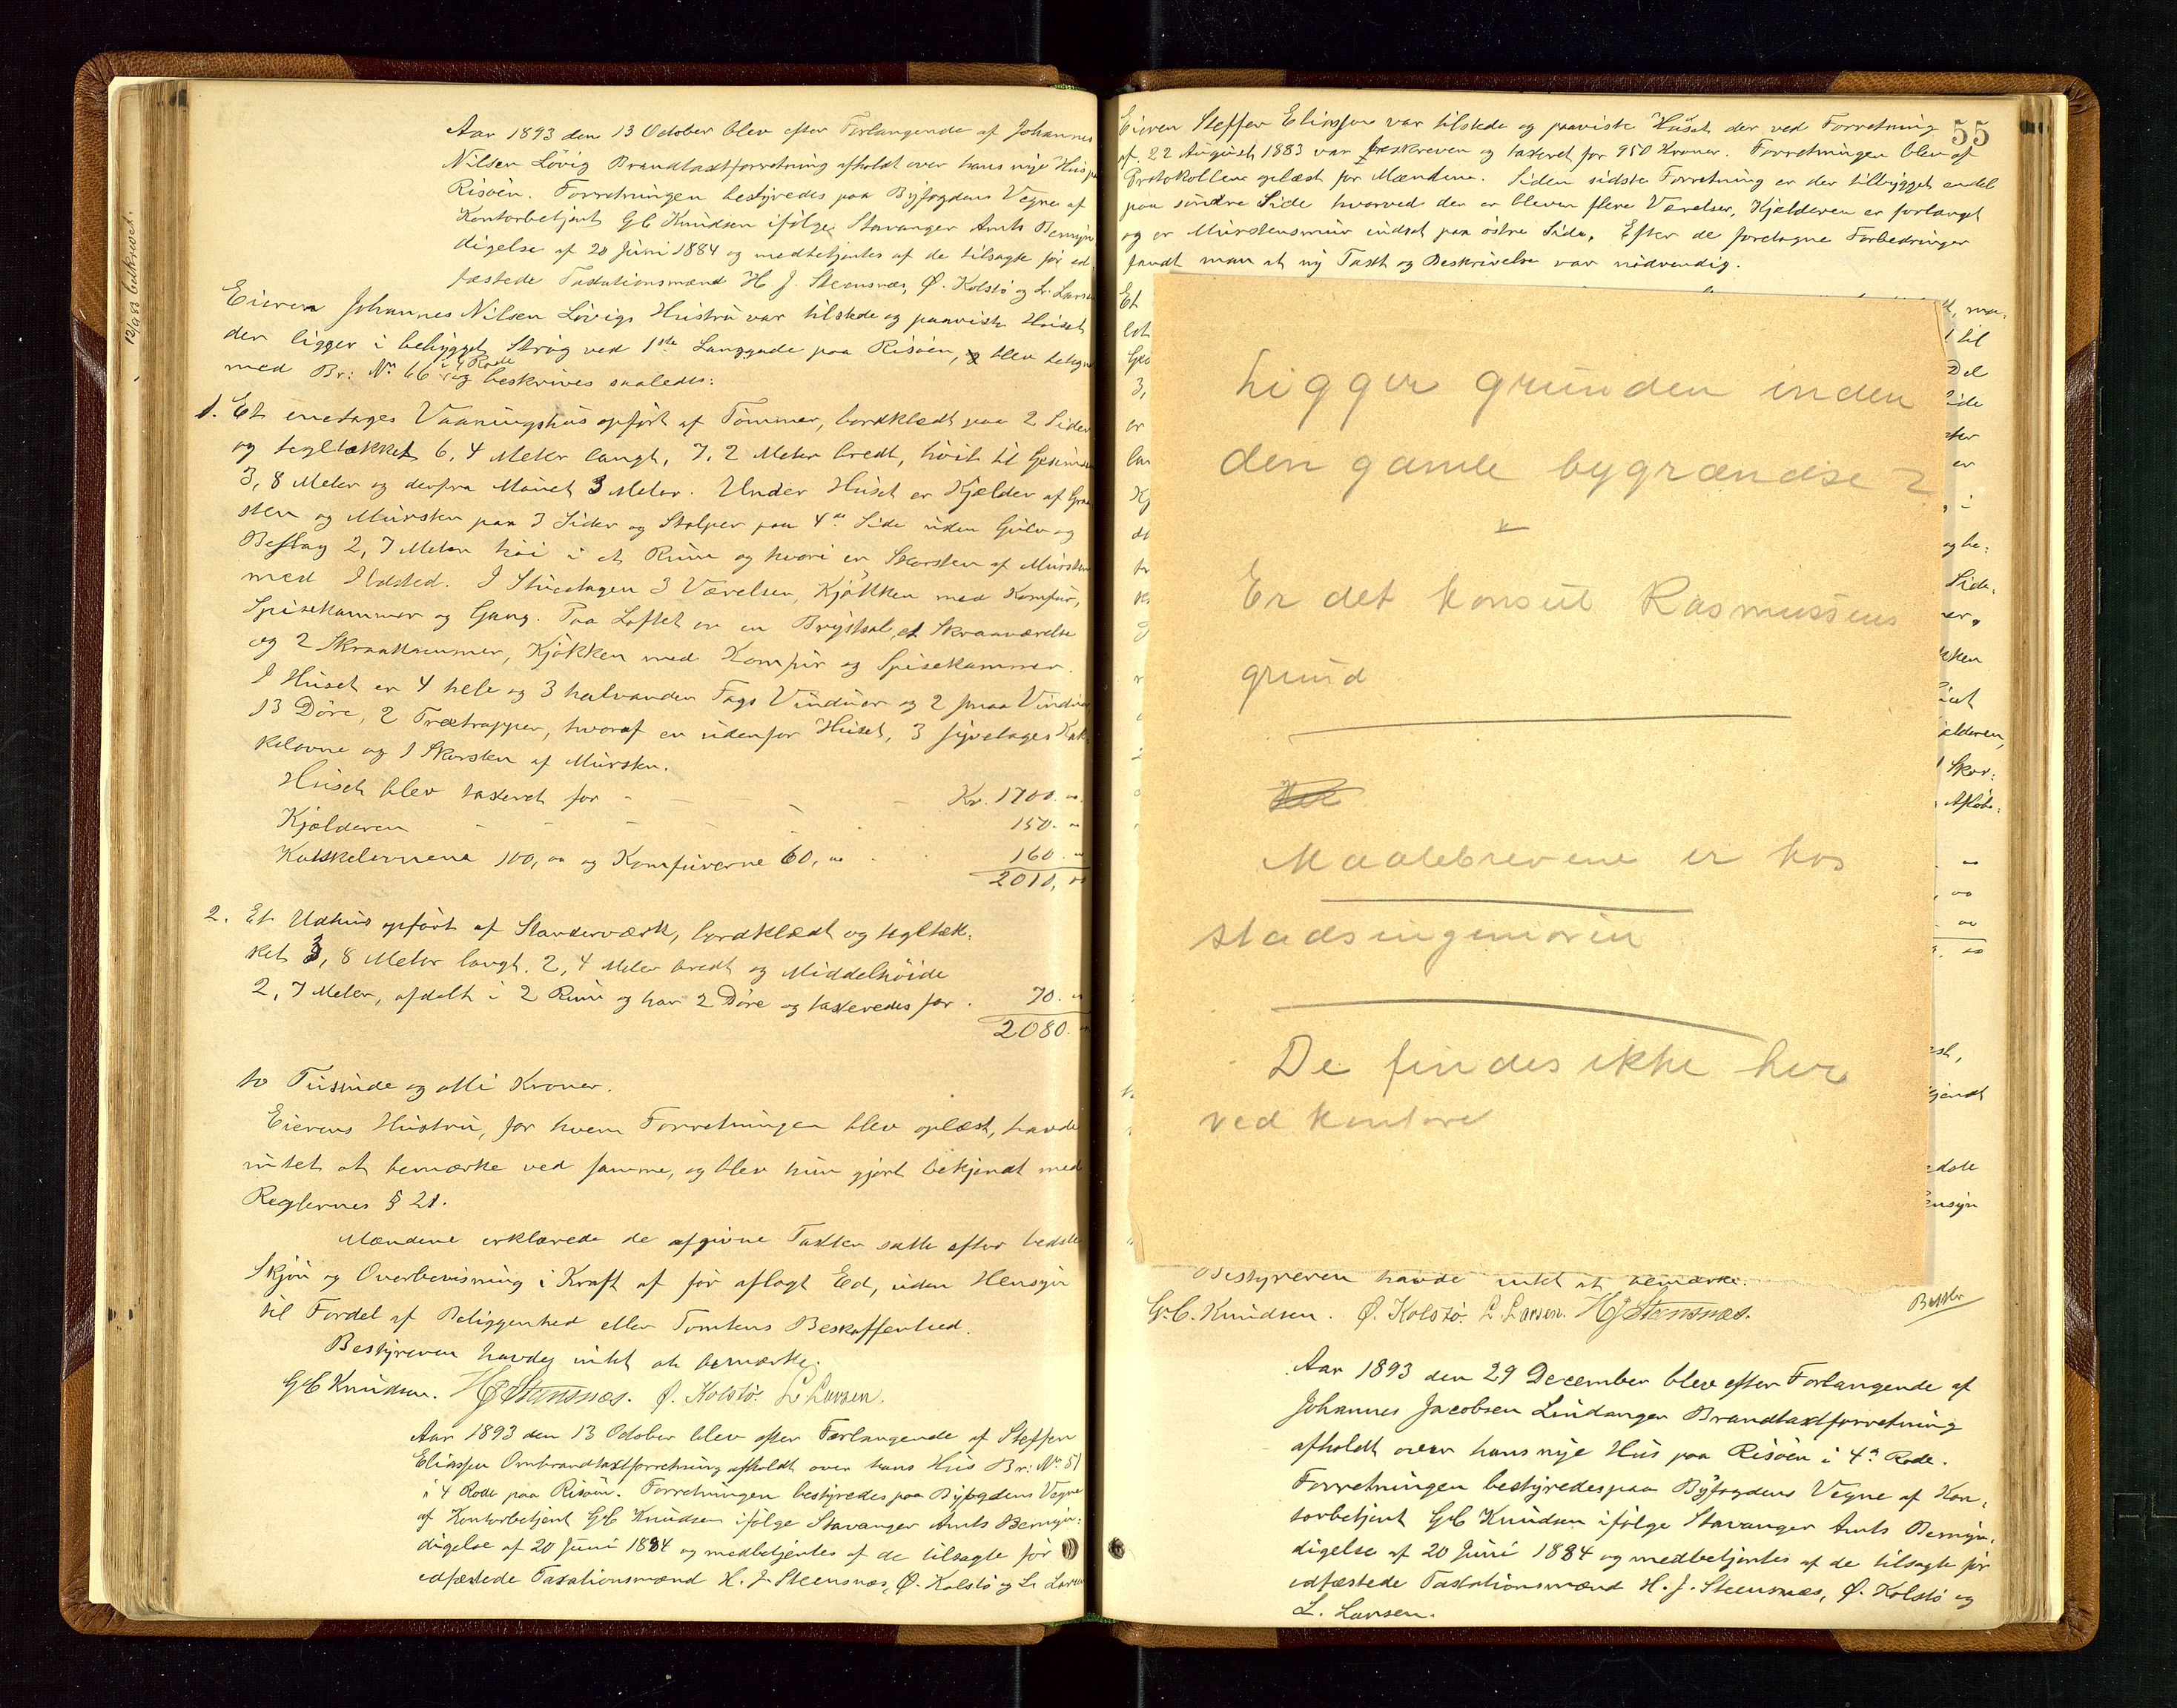 12/9 83 beskrevet.
Aar 1893 den 13 October blev efter Forlangende af Johannes
Nilsen Lövig Brandtaxtforretning afholdt over hans nye Hus paa
Risöen. Forretningen bestyredes paa Byfogdens Vegne af
Kontorbetjent GC Knudsen ifölge Stavanger Amts Bemyn-
digelse af 20 Juni 1884 og medbetjentes af de tilsagte för ed-
fæstede Taxationsmænd H J. Steensnæs, Ø. Kolstö og L. Larsen
Eieren Johannes Nilsen Lövigs Hustru var tilstede og paaviste Huset
der ligger i bebygget Strög ved 1ste Langgade paa Risöen, og blev betegnet
med Br: No 66 i 4 Rode og beskrives saaledes:
1. Et enetages Vaaningshus opfört af Tömmer, bordklædt paa 2 Sider
og tegltækket 6,4 Meter langt, 7,2 Meter bredt, höit til Gesimsen
3,8 Meter og derfra Mönet 3 Meter. Under Huset er Kjelder af Graa
sten og Mursten paa 3 Sider og Stolper paa 4de Side uden Gulv og
Beslag 2,7 Meter höi i et Rum og hvori en Skorsten af Mursten
med Ildsted. I Stueetagen 3 Værelser, Kjökken med Komfur,
Spisekammer og Gang. Paa Loftet er en Brystsal, et Skraaværelse
og 2 Skraakammer, Kjökken med Komfur og Spisekammer.
I Huset er 4 hele og 3 halvanden Fags Vinduer og 2 smaa Vinduer
13 Döre, 2 Trætrapper, hvoraf en udenfor Huset, 3 syvetages Kak-
kelovne og 1 Skorsten af Mursten.
Huset blev taxeret for - - - - Kr. 1700. "
Kjelderen - - - - 150. "
Kakkelovnene 100,00 og Komfurerne 60,00 160 "
2010,00
2. Et Udhus opfört af Standerværk, bordklædt og tegltæk-
ket 3,8 Meter langt. 2,4 Meter bredt og Middelhöide
2,7 Meter, afdelt i 2 Rum og har 2 Döre og taxeredes for 70. "
2080.
to Tusinde og otti Kroner.
Eierens Hustru, for hvem Forretningen blev oplæst, havde
intet at bemærke ved samme, og blev hun gjort bekjendt med
Reglernes § 21.
Mændene erklærede de afgivne Taxter satte efter bedste
Skjön og Overbevisning i Kraft af för aflagt Eed, uden Hensyn
til Fordel af Beliggenhed eller Tomtens Beskaffenhed.
Bestyreren havde intet at bemærke.
GC Knudsen. HJ Steensnæs. Ø. Kolstö. L. Larsen.
Aar 1893 den 13 October blev efter Forlangende af Steffen
Eliassen Ombrandtaxtforretning afholdt over hans Hus Br: No 51
i 4 Rode paa Risöen. Forretningen bestyredes paa Byfogdens Vegne
af Kontorbetjent GC Knudsen ifölge Stavanger Amts Bemyn-
digelse af 20 Juni 1884 og medbetjentes af de tilsagte för
edfæstede Taxationsmænd H. J. Steensnæs, Ø. Kolstö og L. Larsen
55
Eieren Steffen Eliassen var tilstede og paaviste Huset der ved Forretning
af 22 August 1883 var beskreven og taxeret for 950 Kroner. Forretningen blev af
Protokollen oplæst for Mændene. Siden sidste Forretning er der tilbygget endel
paa söndre Side hvorved der er bleven flere Værelser, Kjelderen er forlænget
og er Murstensmur indsat paa östre Side. Efter de foretagne Forbedringer
fandt man at ny Taxt og Beskrivelse var nödvendig.
Ligger grunden inden
den gamle bygrændse?
Er det konsul Rasmussens
grund
Maalebrevene er hos
stadsingeniøren
De findes ikke her
ved kontoret
Bestyreren havde intet at bemærke.
G.C. Knudsen. Ø. Kolstö. L. Larsen. HJ Steensnæs.
Aar 1893 den 29 December blev efter Forlangende af
Johannes Jacobsen Lindanger Brandtaxtforretning
afholdt over hans nye Hus paa Risöen i 4de Rode.
Forretningen bestyredes paa Byfogdens Vegne af Kon-
torbetjent GC Knudsen ifölge Stavanger Amts Bemyn-
digelse af 20 Juni 1884 og medbetjentes af de tilsagte för
edfæstede Taxtationsmænd H. J. Steensnæs, Ø. Kolstö og
L. Larsen.